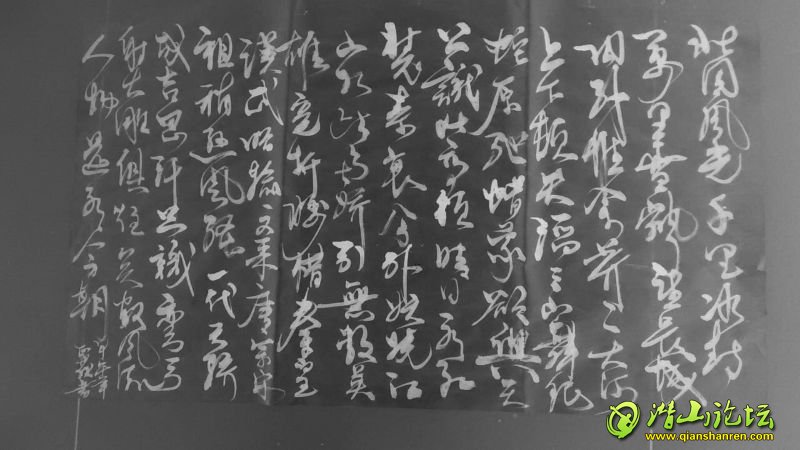 北国风光千里冰封
万里雪飘望长城
内外惟余莽莽大河
上下顿失滔滔山舞银
蛇原驰蜡象欲與天
公試比高须晴日看红
装素裹分外妖娆江
山如此多娇引無数英
雄竞折腰惜秦皇
汉武略输文采唐宗宋
祖稍逊风骚一代天骄
成吉思汗只識弯弓
射大雕俱往矣数风流
人物还看今朝
潜山论坛
www.qianshanren.com